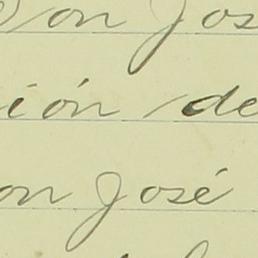 Don Jos
ión de
on José